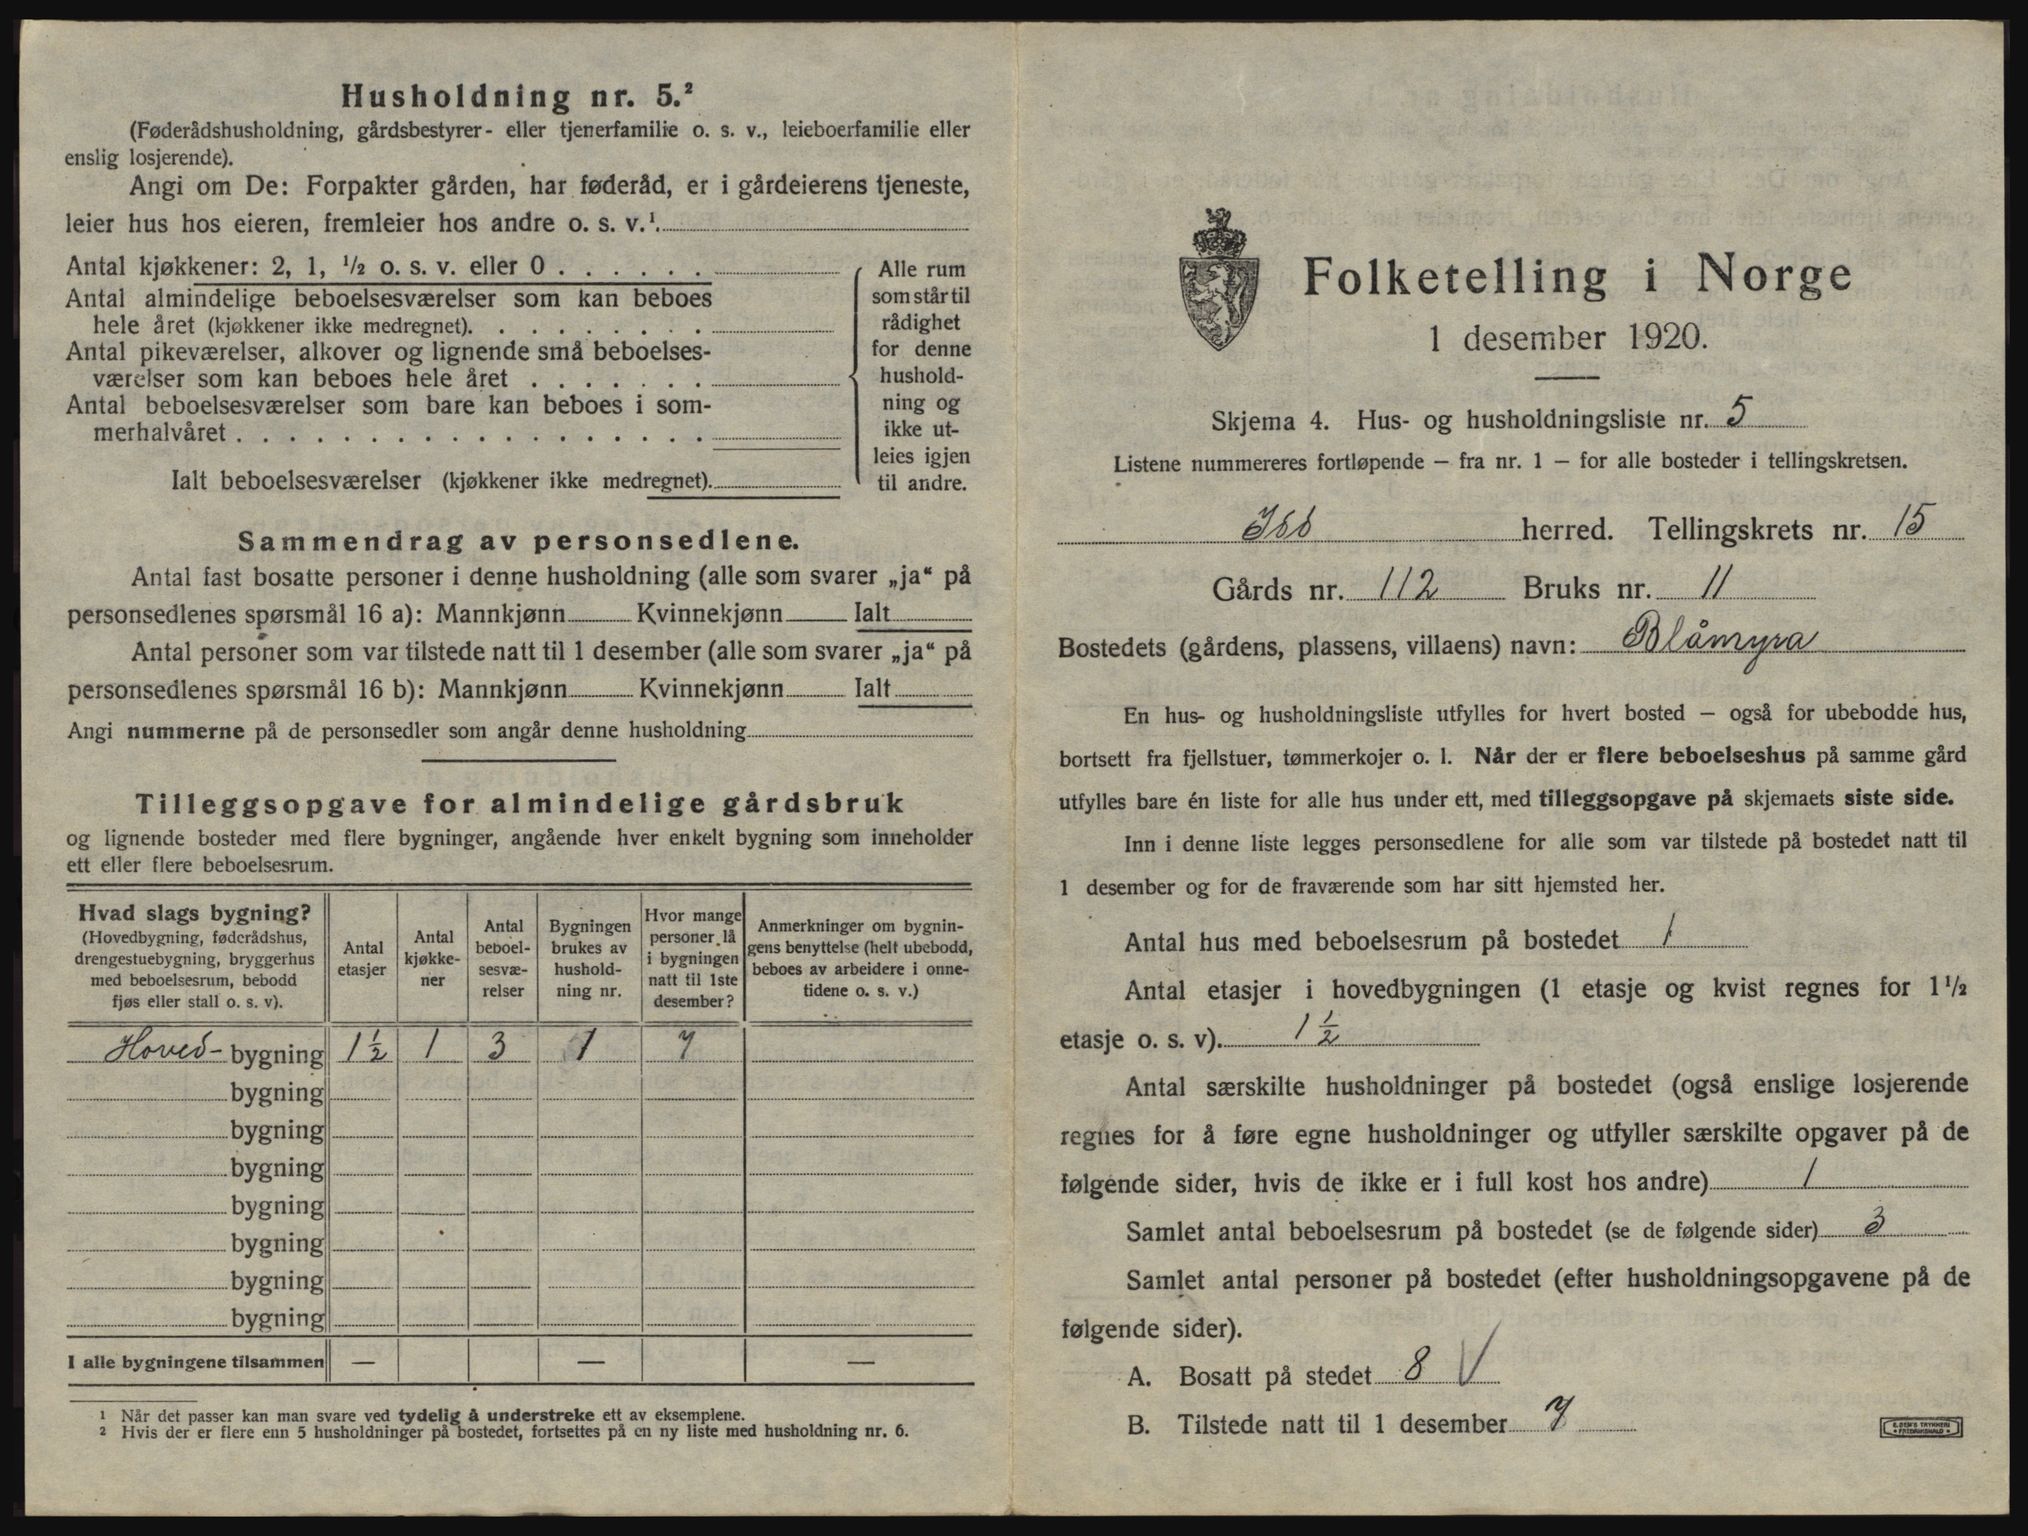 Husholdning nr. 5.²
(Føderådshusholdning, gårdsbestyrer- eller tjenerfamilie o. s. v., leieboerfamilie eller
enslig losjerende).
Angi om De: Forpakter gården, har føderåd, er i gårdeierens tjeneste,
leier hus hos eieren, fremleier hos andre o. s. v.¹.
Antal kjøkkener: 2, 1, ½ o. s. v. eller 0 . . . . . .
Antal almindelige beboelsesværelser som kan beboes
hele året (kjøkkener ikke medregnet). . . . . . . . .
Antal pikeværelser, alkover og lignende små beboelses-
værelser som kan beboes hele året . . . . . . .
Antal beboelsesværelser som bare kan beboes i som-
merhalvåret . . . . . . . . . . . . . . . . . .
Ialt beboelsesværelser (kjøkkener ikke medregnet).
Alle rum
som står til
rådighet
for denne
hushold-
ning og
ikke ut-
leies igjen
til andre.
Sammendrag av personsedlene.
Antal fast bosatte personer i denne husholdning (alle som svarer „ja“ på
personsedlenes spørsmål 16 a): Mannkjønn Kvinnekjønn Ialt
Antal personer som var tilstede natt til 1 desember (alle som svarer „ja“ på
personsedlenes spørsmål 16 b): Mannkjønn Kvinnekjønn Ialt
Angi nummerne på de personsedler som angår denne husholdning
Tilleggsopgave for almindelige gårdsbruk
og lignende bosteder med flere bygninger, angående hver enkelt bygning som inneholder
ett eller flere beboelsesrum.
Hvad slags bygning?
(Hovedbygning, føderådshus,
drengestuebygning, bryggerhus
med beboelsesrum, bebodd
fjøs eller stall o. s. v).
Antal
etasjer
Antal
kjøkke-
ner
Antal
beboel-
sesvæ-
relser
Bygningen
brukes av
hushold-
ning nr.
Hvor mange
personer lå
i bygningen
natt til 1ste
desember?
Anmerkninger om bygnin-
gens benyttelse (helt ubebodd,
beboes av arbeidere i onne-
tidene o. s. v.)
Hoved- bygning 1½ 1 3 1 7
bygning
bygning
bygning
bygning
bygning
bygning
bygning
I alle bygningene tilsammen — — —
¹ Når det passer kan man svare ved tydelig å understreke ett av eksemplene.
² Hvis der er flere enn 5 husholdninger på bostedet, fortsettes på en ny liste med husholdning nr. 6.
Folketelling i Norge
1 desember 1920.
Skjema 4. Hus- og husholdningsliste nr. 5
Listene nummereres fortløpende — fra nr. 1 — for alle bosteder i tellingskretsen.
Idd herred. Tellingskrets nr. 15
Gårds nr. 112 Bruks nr. 11
Bostedets (gårdens, plassens, villaens) navn: Blåmyra
En hus- og husholdningsliste utfylles for hvert bosted — også for ubebodde hus,
bortsett fra fjellstuer, tømmerkojer o. l. Når der er flere beboelseshus på samme gård
utfylles bare én liste for alle hus under ett, med tilleggsopgave på skjemaets siste side.
Inn i denne liste legges personsedlene for alle som var tilstede på bostedet natt til
1 desember og for de fraværende som har sitt hjemsted her.
Antal hus med beboelsesrum på bostedet 1
Antal etasjer i hovedbygningen (1 etasje og kvist regnes for 1½
etasje o. s. v). 1½
Antal særskilte husholdninger på bostedet (også enslige losjerende
regnes for å føre egne husholdninger og utfyller særskilte opgaver på de
følgende sider, hvis de ikke er i full kost hos andre) 1
Samlet antal beboelsesrum på bostedet (se de følgende sider) 3
Samlet antal personer på bostedet (efter husholdningsopgavene på de
følgende sider).
A. Bosatt på stedet 8 V
B. Tilstede natt til 1 desember 7
E. SEM'S TRYKKERI
FREDRIKSHALD